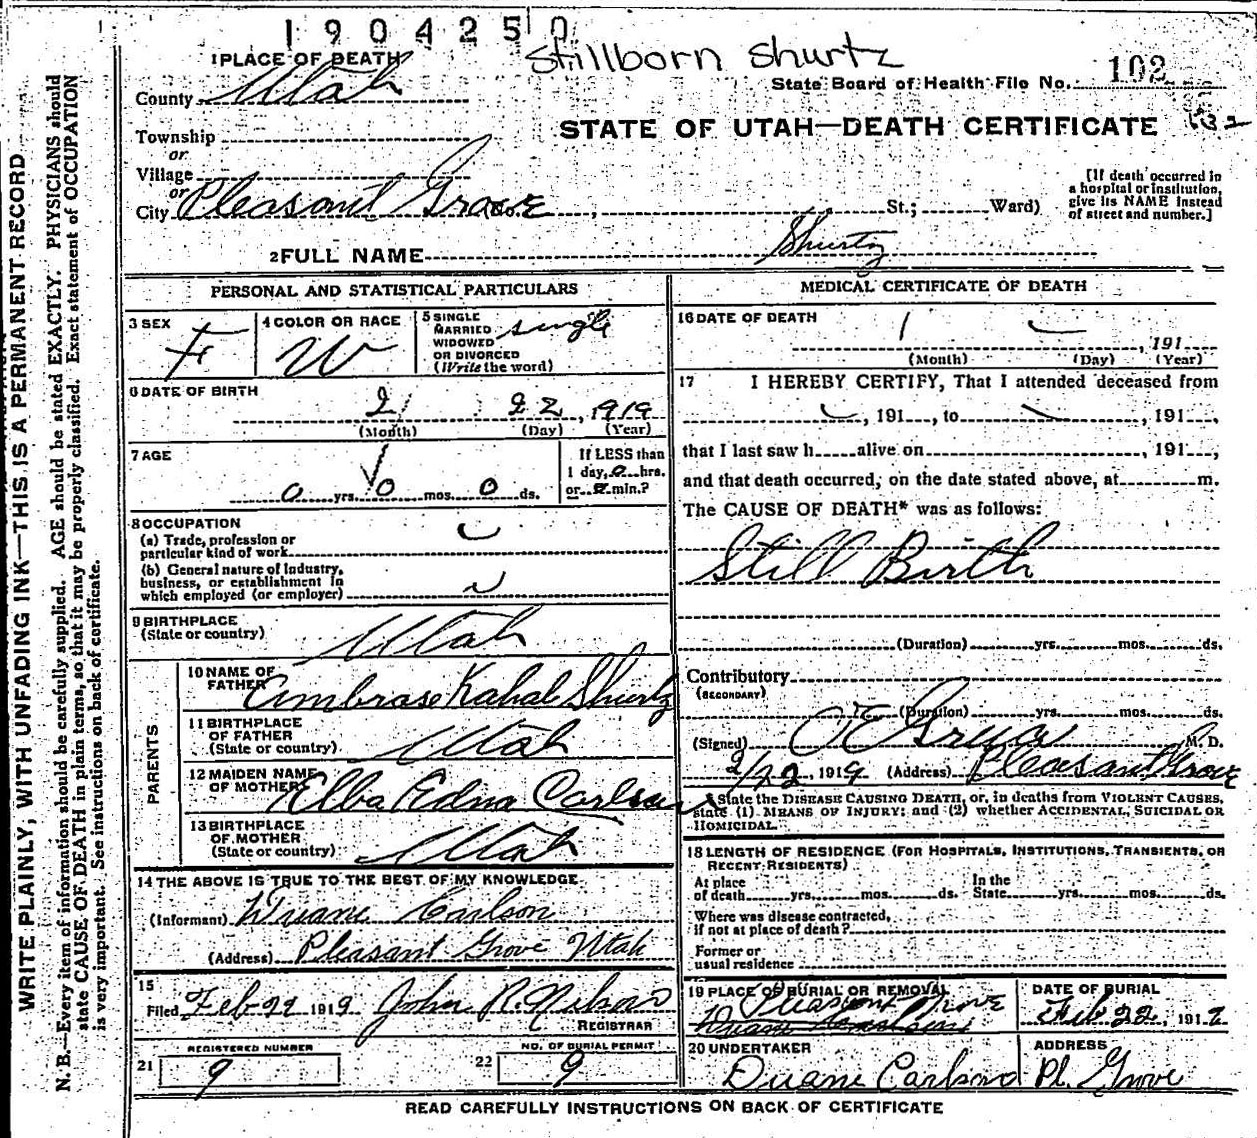 1904250
Stillborn Shurtz
1 PLACE OF DEATH
State Board of Health File No. 102
County Utah
STATE OF UTAH—DEATH CERTIFICATE
Township
or
Village
or
City Pleasant Grove No. , St.; Ward)
[If death occurred in
a hospital or institution,
give its NAME instead
of street and number.]
2 FULL NAME Shurtz
PERSONAL AND STATISTICAL PARTICULARS
3 SEX F
4 COLOR OR RACE W
5 SINGLE
MARRIED
WIDOWED
OR DIVORCED
(Write the word)
single
6 DATE OF BIRTH
2 22, 1919
(Month) (Day) (Year)
7 AGE
0 yrs. 0 mos. 0 ds.
If LESS than
1 day, 0 hrs.
or 0 min.?
8 OCCUPATION
(a) Trade, profession or
particular kind of work
(b) General nature of Industry,
business, or establishment in
which employed (or employer)
9 BIRTHPLACE
(State or country) Utah
PARENTS
10 NAME OF
FATHER Ambrose Kahal Shurtz
11 BIRTHPLACE
OF FATHER
(State or country) Utah
12 MAIDEN NAME
OF MOTHER Elba Edna Carlson
13 BIRTHPLACE
OF MOTHER
(State or country) Utah
14 THE ABOVE IS TRUE TO THE BEST OF MY KNOWLEDGE
(Informant) Duane Carlson
(Address) Pleasant Grove Utah
15
Filed Feb 22 1919 John R. Nelson
REGISTRAR
REGISTERED NUMBER
21 9
NO. OF BURIAL PERMIT
22 9
MEDICAL CERTIFICATE OF DEATH
16 DATE OF DEATH
, 191
(Month) (Day) (Year)
17 I HEREBY CERTIFY, That I attended deceased from
, 191 , to , 191 ,
that I last saw h alive on , 191 ,
and that death occurred, on the date stated above, at m.
The CAUSE OF DEATH* was as follows:
Still Birth
(Duration) yrs. mos. ds.
Contributory
(SECONDARY)
(Duration) yrs. mos. ds.
(Signed) M. D.
2/22, 1919 (Address) Pleasant Grove
*State the DISEASE CAUSING DEATH, or, in deaths from VIOLENT CAUSES,
state (1) MEANS OF INJURY; and (2) whether ACCIDENTAL, SUICIDAL OR
HOMICIDAL.
18 LENGTH OF RESIDENCE (FOR HOSPITALS, INSTITUTIONS, TRANSIENTS, OR
RECENT RESIDENTS)
At place
of death yrs. mos. ds.
In the
State yrs. mos. ds.
Where was disease contracted,
if not at place of death?
Former or
usual residence
19 PLACE OF BURIAL OR REMOVAL
Pleasant Grove
Duane Carlson
DATE OF BURIAL
Feb 22, 1919
20 UNDERTAKER
Duane Carlson
ADDRESS
Pl. Grove
READ CAREFULLY INSTRUCTIONS ON BACK OF CERTIFICATE
WRITE PLAINLY, WITH UNFADING INK—THIS IS A PERMANENT RECORD
N. B.—Every item of information should be carefully supplied. AGE should be stated EXACTLY. PHYSICIANS should
state CAUSE OF DEATH in plain terms, so that it may be properly classified. Exact statement of OCCUPATION
is very important. See instructions on back of certificate.